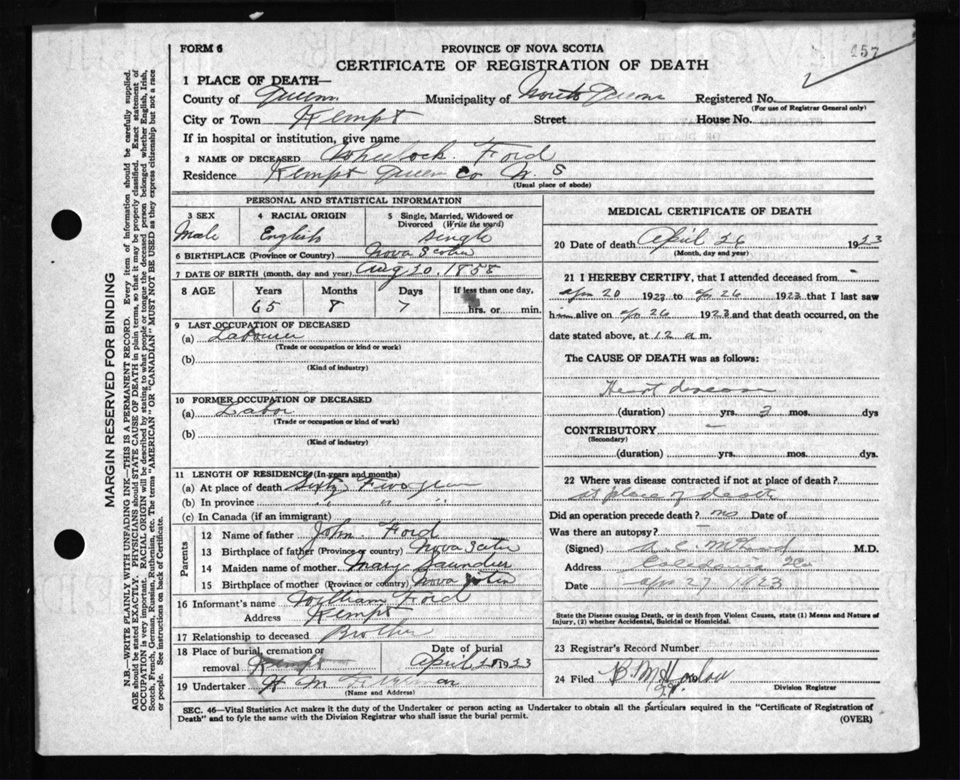 FORM 6
PROVINCE OF NOVA SCOTIA
457
CERTIFICATE OF REGISTRATION OF DEATH
1 PLACE OF DEATH—
County of Queens Municipality of North Queens Registered No.
(For use of Registrar General only)
City or Town Kempt Street House No.
If in hospital or institution, give name
2 NAME OF DECEASED Whelock Ford
Residence Kempt Queens Co N. S
(Usual place of abode)
PERSONAL AND STATISTICAL INFORMATION
3 SEX 4 RACIAL ORIGIN 5 Single, Married, Widowed or Divorced (Write the word)
Male English Single
6 BIRTHPLACE (Province or Country) Nova Scotia
7 DATE OF BIRTH (month, day and year) Aug 20, 1858
8 AGE Years Months Days If less than one day,
65 8 7 hrs. or min.
9 LAST OCCUPATION OF DECEASED
(a) Labourer
(Trade or occupation or kind or work)
(b)
(Kind of industry)
10 FORMER OCCUPATION OF DECEASED
(a) Labor
(Trade or occupation or kind of work)
(b)
(Kind of industry)
11 LENGTH OF RESIDENCE (In years and months)
(a) At place of death Sixty Five years
(b) In province " " "
(c) In Canada (if an immigrant)
Parents
12 Name of father John Ford
13 Birthplace of father (Province or country) Nova Scotia
14 Maiden name of mother Mary Saunders
15 Birthplace of mother (Province or country) Nova Scotia
16 Informant's name William Ford
Address Kempt
17 Relationship to deceased Brother
18 Place of burial, cremation or removal Kempt Date of burial April 28 1923
19 Undertaker H M
(Name and Address)
MEDICAL CERTIFICATE OF DEATH
20 Date of death April 26 1923
(Month, day and year)
21 I HEREBY CERTIFY, that I attended deceased from
apr 20 1923 to apr 26 1923 that I last saw
him alive on apr 26 1923 and that death occurred, on the
date stated above, at 12 a m.
The CAUSE OF DEATH was as follows:
Heart disease
(duration) yrs. 2 mos. dys
CONTRIBUTORY —
(Secondary)
(duration) yrs. mos. dys.
22 Where was disease contracted if not at place of death?
at place of death
Did an operation precede death? no Date of
Was there an autopsy? —
(Signed) M.D.
Address Caledonia
Date apr 27 1923
State the Disease causing Death, or in death from Violent Causes, state (1) Means and Nature of
Injury, (2) whether Accidental, Suicidal or Homicidal.
23 Registrar's Record Number
24 Filed
Division Registrar
SEC. 46—Vital Statistics Act makes it the duty of the Undertaker or person acting as Undertaker to obtain all the particulars required in the "Certificate of Registration of
Death" and to fyle the same with the Division Registrar who shall issue the burial permit. (OVER)
MARGIN RESERVED FOR BINDING
N.B.—WRITE PLAINLY WITH UNFADING INK—THIS IS A PERMANENT RECORD. Every item of information should be carefully supplied.
AGE should be stated EXACTLY. PHYSICIANS should STATE CAUSE OF DEATH in plain terms, so that it may be properly classified. Exact statement of
OCCUPATION is very important. RACIAL ORIGIN will be described by stating to what people or tongue the deceased person belonged whether English, Irish,
Scotch, French, German, Russian, Ruthenian, etc. The terms "AMERICAN" OR "CANADIAN" MUST NOT BE USED as they express citizenship but not a race
or people. See instructions on back of Certificate.